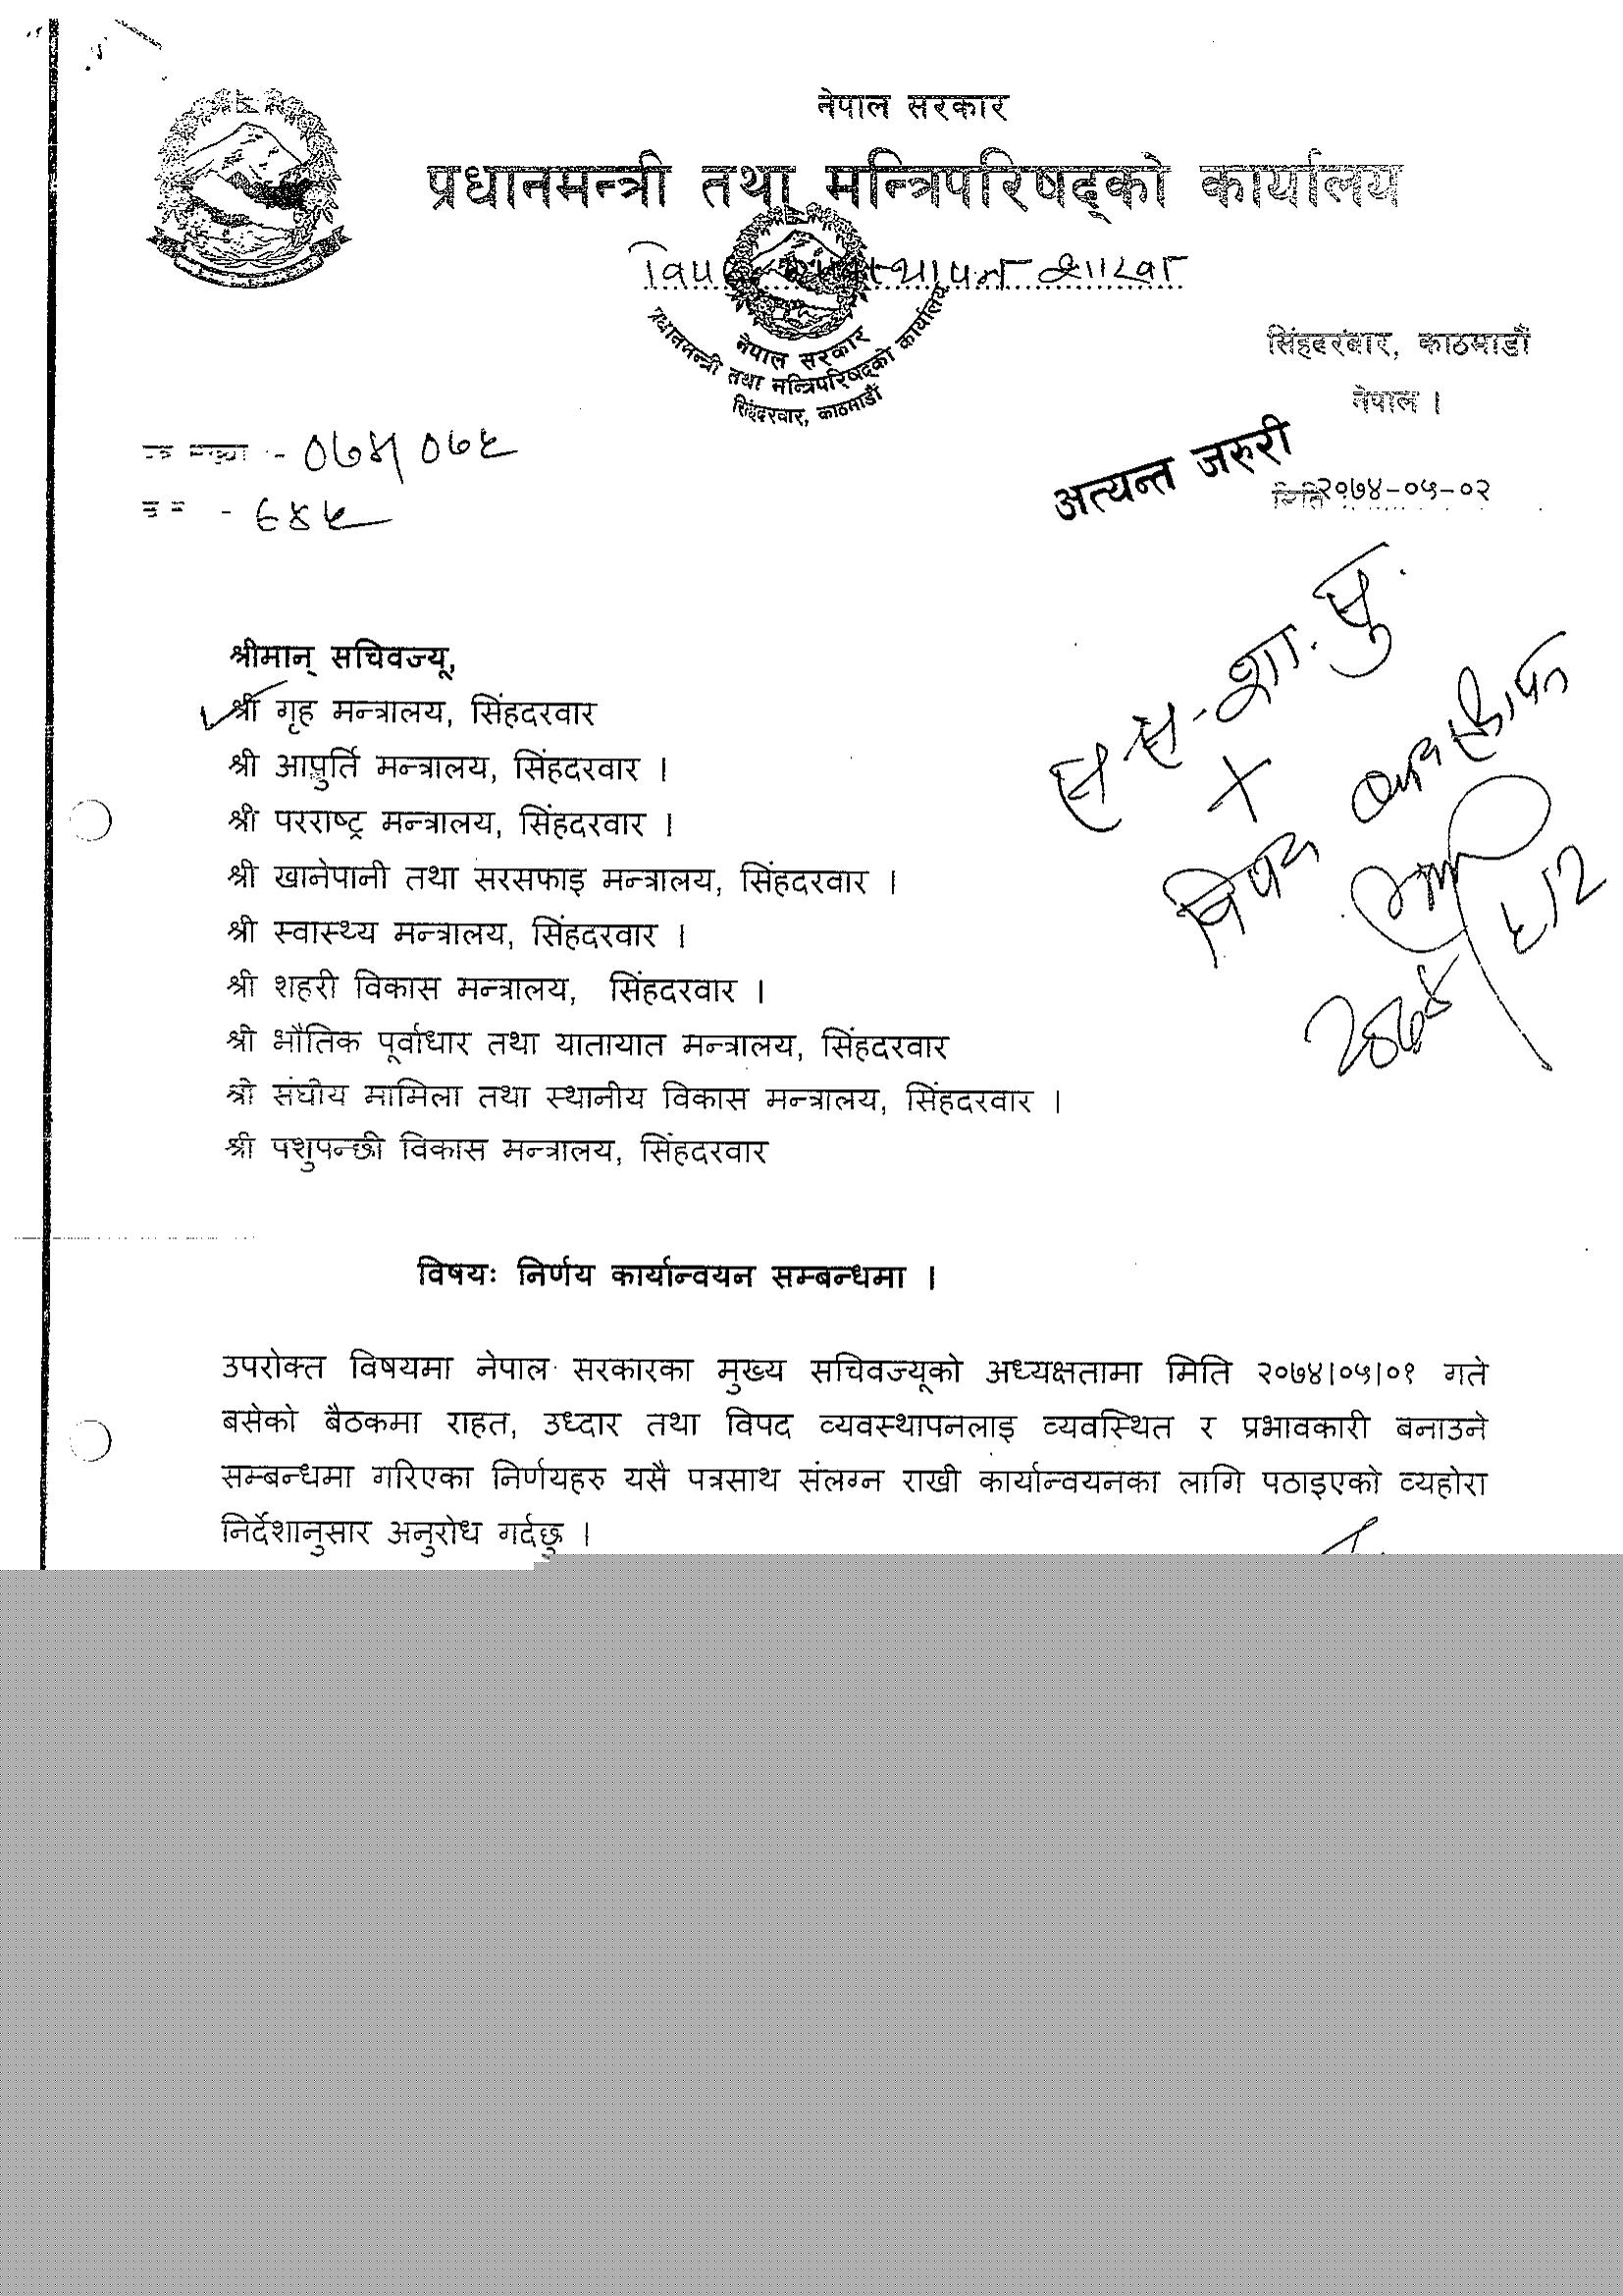 नेपाल सरकार
प्रधानमन्त्री तथा मन्त्रिपरिषद्को कार्यालय
शाखा
नेपाल सरकार
प्रधानमन्त्री तथा मन्त्रिपरिषद्को कार्यालय
सिंहदरवार, काठमाडौं
सिंहदरबार, काठमाडौं
नेपाल ।
अत्यन्त जरुरी
मिति २०७४-०५-०२
श्रीमान् सचिवज्यू,
श्री गृह मन्त्रालय, सिंहदरवार
श्री आपुर्ति मन्त्रालय, सिंहदरवार ।
श्री परराष्ट्र मन्त्रालय, सिंहदरवार ।
श्री खानेपानी तथा सरसफाइ मन्त्रालय, सिंहदरवार ।
श्री स्वास्थ्य मन्त्रालय, सिंहदरवार ।
श्री शहरी विकास मन्त्रालय, सिंहदरवार ।
श्री भौतिक पूर्वाधार तथा यातायात मन्त्रालय, सिंहदरवार
श्री संघीय मामिला तथा स्थानीय विकास मन्त्रालय, सिंहदरवार ।
श्री पशुपन्छी विकास मन्त्रालय, सिंहदरवार
विषयः निर्णय कार्यान्वयन सम्बन्धमा ।
उपरोक्त विषयमा नेपाल सरकारका मुख्य सचिवज्यूको अध्यक्षतामा मिति २०७४|०५|०१ गते
बसेको बैठकमा राहत, उध्दार तथा विपद व्यवस्थापनलाइ व्यवस्थित र प्रभावकारी बनाउने
सम्बन्धमा गरिएका निर्णयहरु यसै पत्रसाथ संलग्न राखी कार्यान्वयनका लागि पठाइएको व्यहोरा
निर्देशानुसार अनुरोध गर्दछु ।